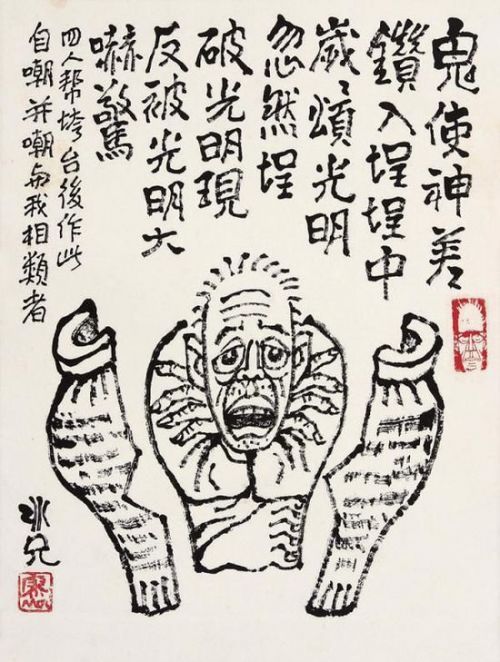 鬼使神差
鑽入埕埕中
歲〻頌光明
忽然埕
破光明現
反被光明大
嚇驚
四人幫垮台後作此
自嘲并嘲與我相類者
冰兄